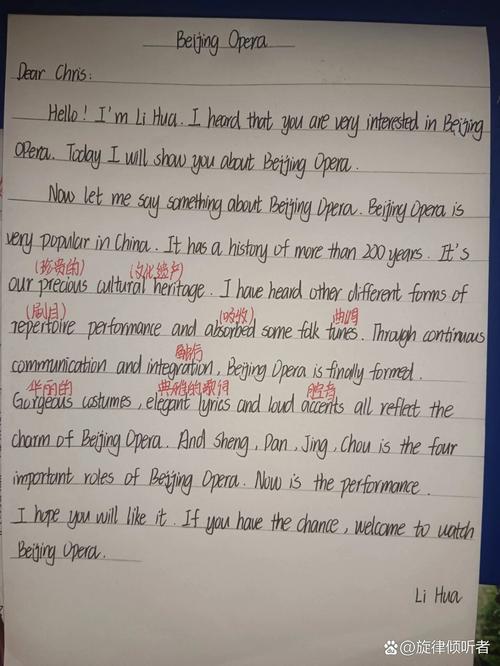 Beijing Opera
Dear Chris:
Hello! I'm Li Hua. I heard that you are very interested in Beijing
Opera. Today I will show you about Beijing Opera.
Now let me say something about Beijing Opera. Beijing Opera is
very popular in China. It has a history of more than 200 years. It's
(珍贵的) (文化遗产)
our precious cultural heritage. I have heard other different forms of
(剧目) (吸收) 曲调
repertoire performance and absorbed some folk tunes. Through continuous
融合
communication and integration, Beijing Opera is finally formed.
华丽的 典雅的歌词 腔音
Gorgeous costumes, elegant lyrics and loud accents all reflect the
charm of Beijing Opera. And Sheng, Dan, Jing, Chou is the four
important roles of Beijing Opera. Now is the performance.
I hope you will like it. If you have the chance, welcome to watch
Beijing Opera.
Li Hua
@旋律倾听者